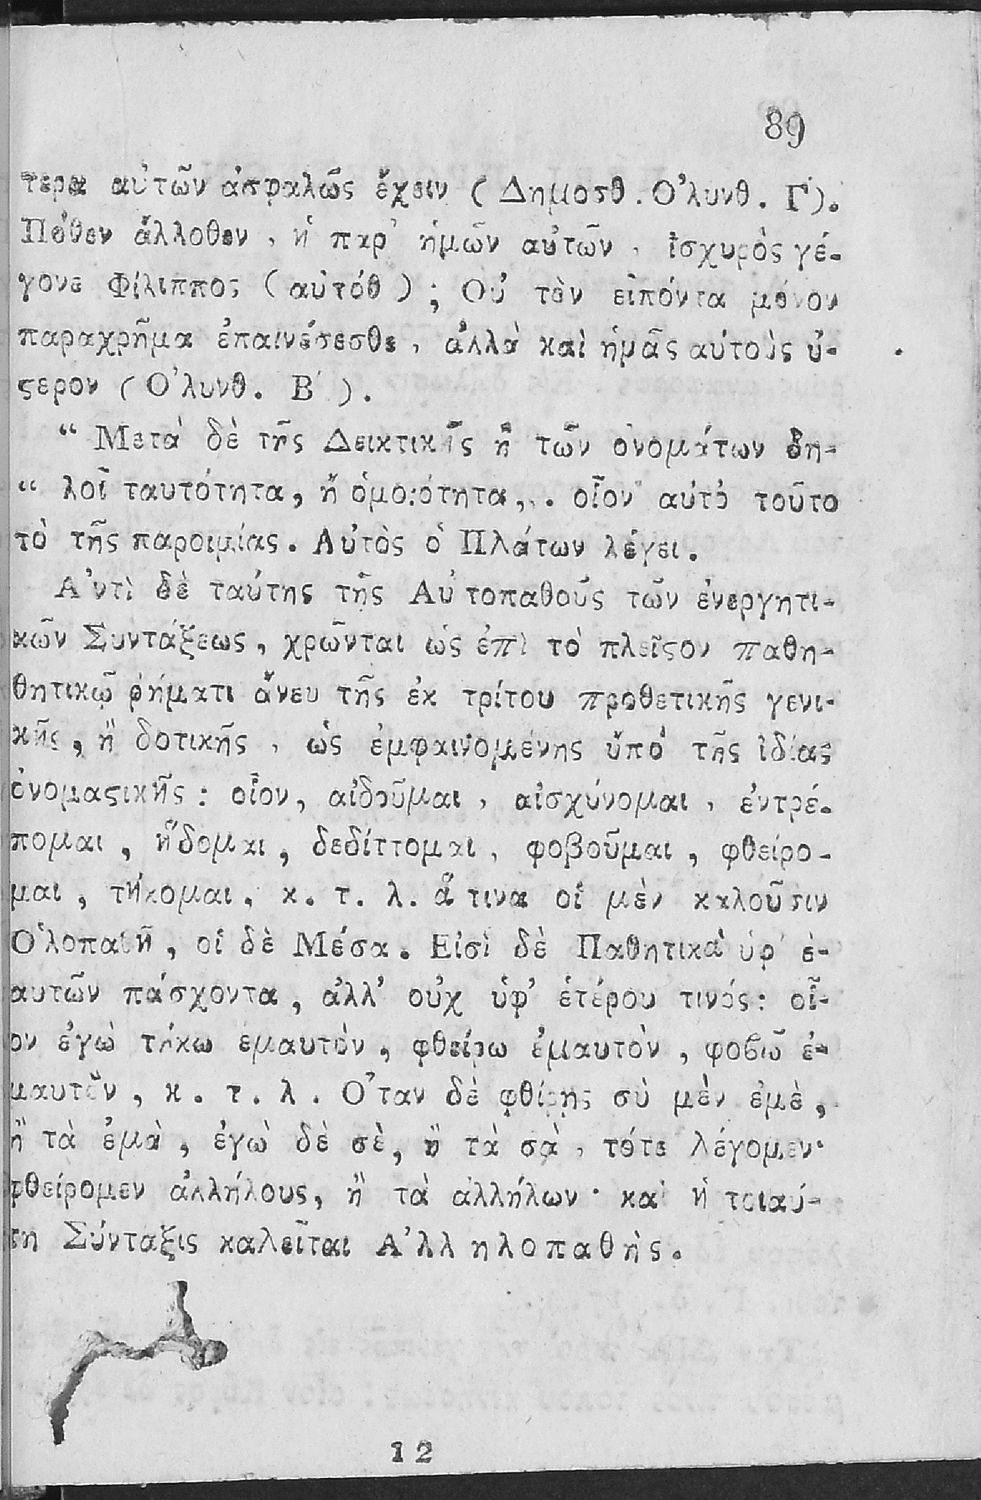 89
τερα αὑτῶν ἀσφαλῶς ἔχειν ( Δημοσθ. Ὀλυνθ. Γ').
Πόθεν ἄλλοθεν, ἢ παρ' ἡμῶν αὐτῶν, ἰσχυρὸς γέ-
γονε Φίλιππος (αὐτόθ) ; Οὐ τὸν εἰπόντα μόνον
παραχρῆμα ἐπαινέσεσθε, ἀλλὰ καὶ ἡμᾶς αὐτοὺς ὕ-
ςερον ( Ὀλυνθ. Β' ).
“ Μετὰ δὲ τῆς Δεικτικῆς ἢ τῶν ὀνομάτων δη-
“ λοῖ ταυτότητα, ἢ ὁμοιότητα,.. οἷον αὐτὸ τοῦτο
τὸ τῆς παροιμίας. Αὐτὸς ὁ Πλάτων λέγει.
Ἀντὶ δὲ ταύτης τῆς Αὐτοπαθοῦς τῶν ἐνεργητι-
κῶν Συντάξεως, χρῶνται ὡς ἐπὶ τὸ πλεῖςον παθη-
θητικῷ ῥήματι ἄνευ τῆς ἐκ τρίτου προθετικῆς γενι-
κῆς, ἢ δοτικῆς, ὡς ἐμφαινομένης ὑπὸ τῆς ἰδίας
ὀνομαςικῆς : οἷον, αἰδοῦμαι, αἰσχύνομαι, ἐντρέ-
πομαι, ἥδομαι, δεδίττομαι, φοβοῦμαι, φθείρο-
μαι, τήκομαι, κ. τ. λ. ἅ τινα οἱ μὲν καλοῦσιν
Ὁλοπαθῆ, οἱ δὲ Μέσα. Εἰσὶ δὲ Παθητικὰ ὑφ' ἑ-
αυτῶν πάσχοντα, ἀλλ' οὐχ ὑφ' ἑτέρου τινός: οἷ-
ον ἐγὼ τήκω ἐμαυτὸν, φθείρω ἐμαυτὸν, φοβῶ ἐ-
μαυτὸν, κ. τ. λ. Ὅταν δὲ φθίρῃς σὺ μὲν ἐμὲ,
ἢ τὰ ἐμὰ, ἐγὼ δὲ σὲ, ἢ τὰ σὰ, τότε λέγομεν·
φθείρομεν ἀλλήλους, ἢ τὰ ἀλλήλων· καὶ ἡ τοιαύ-
τη Σύνταξις καλεῖται Ἀλληλοπαθὴς.
12